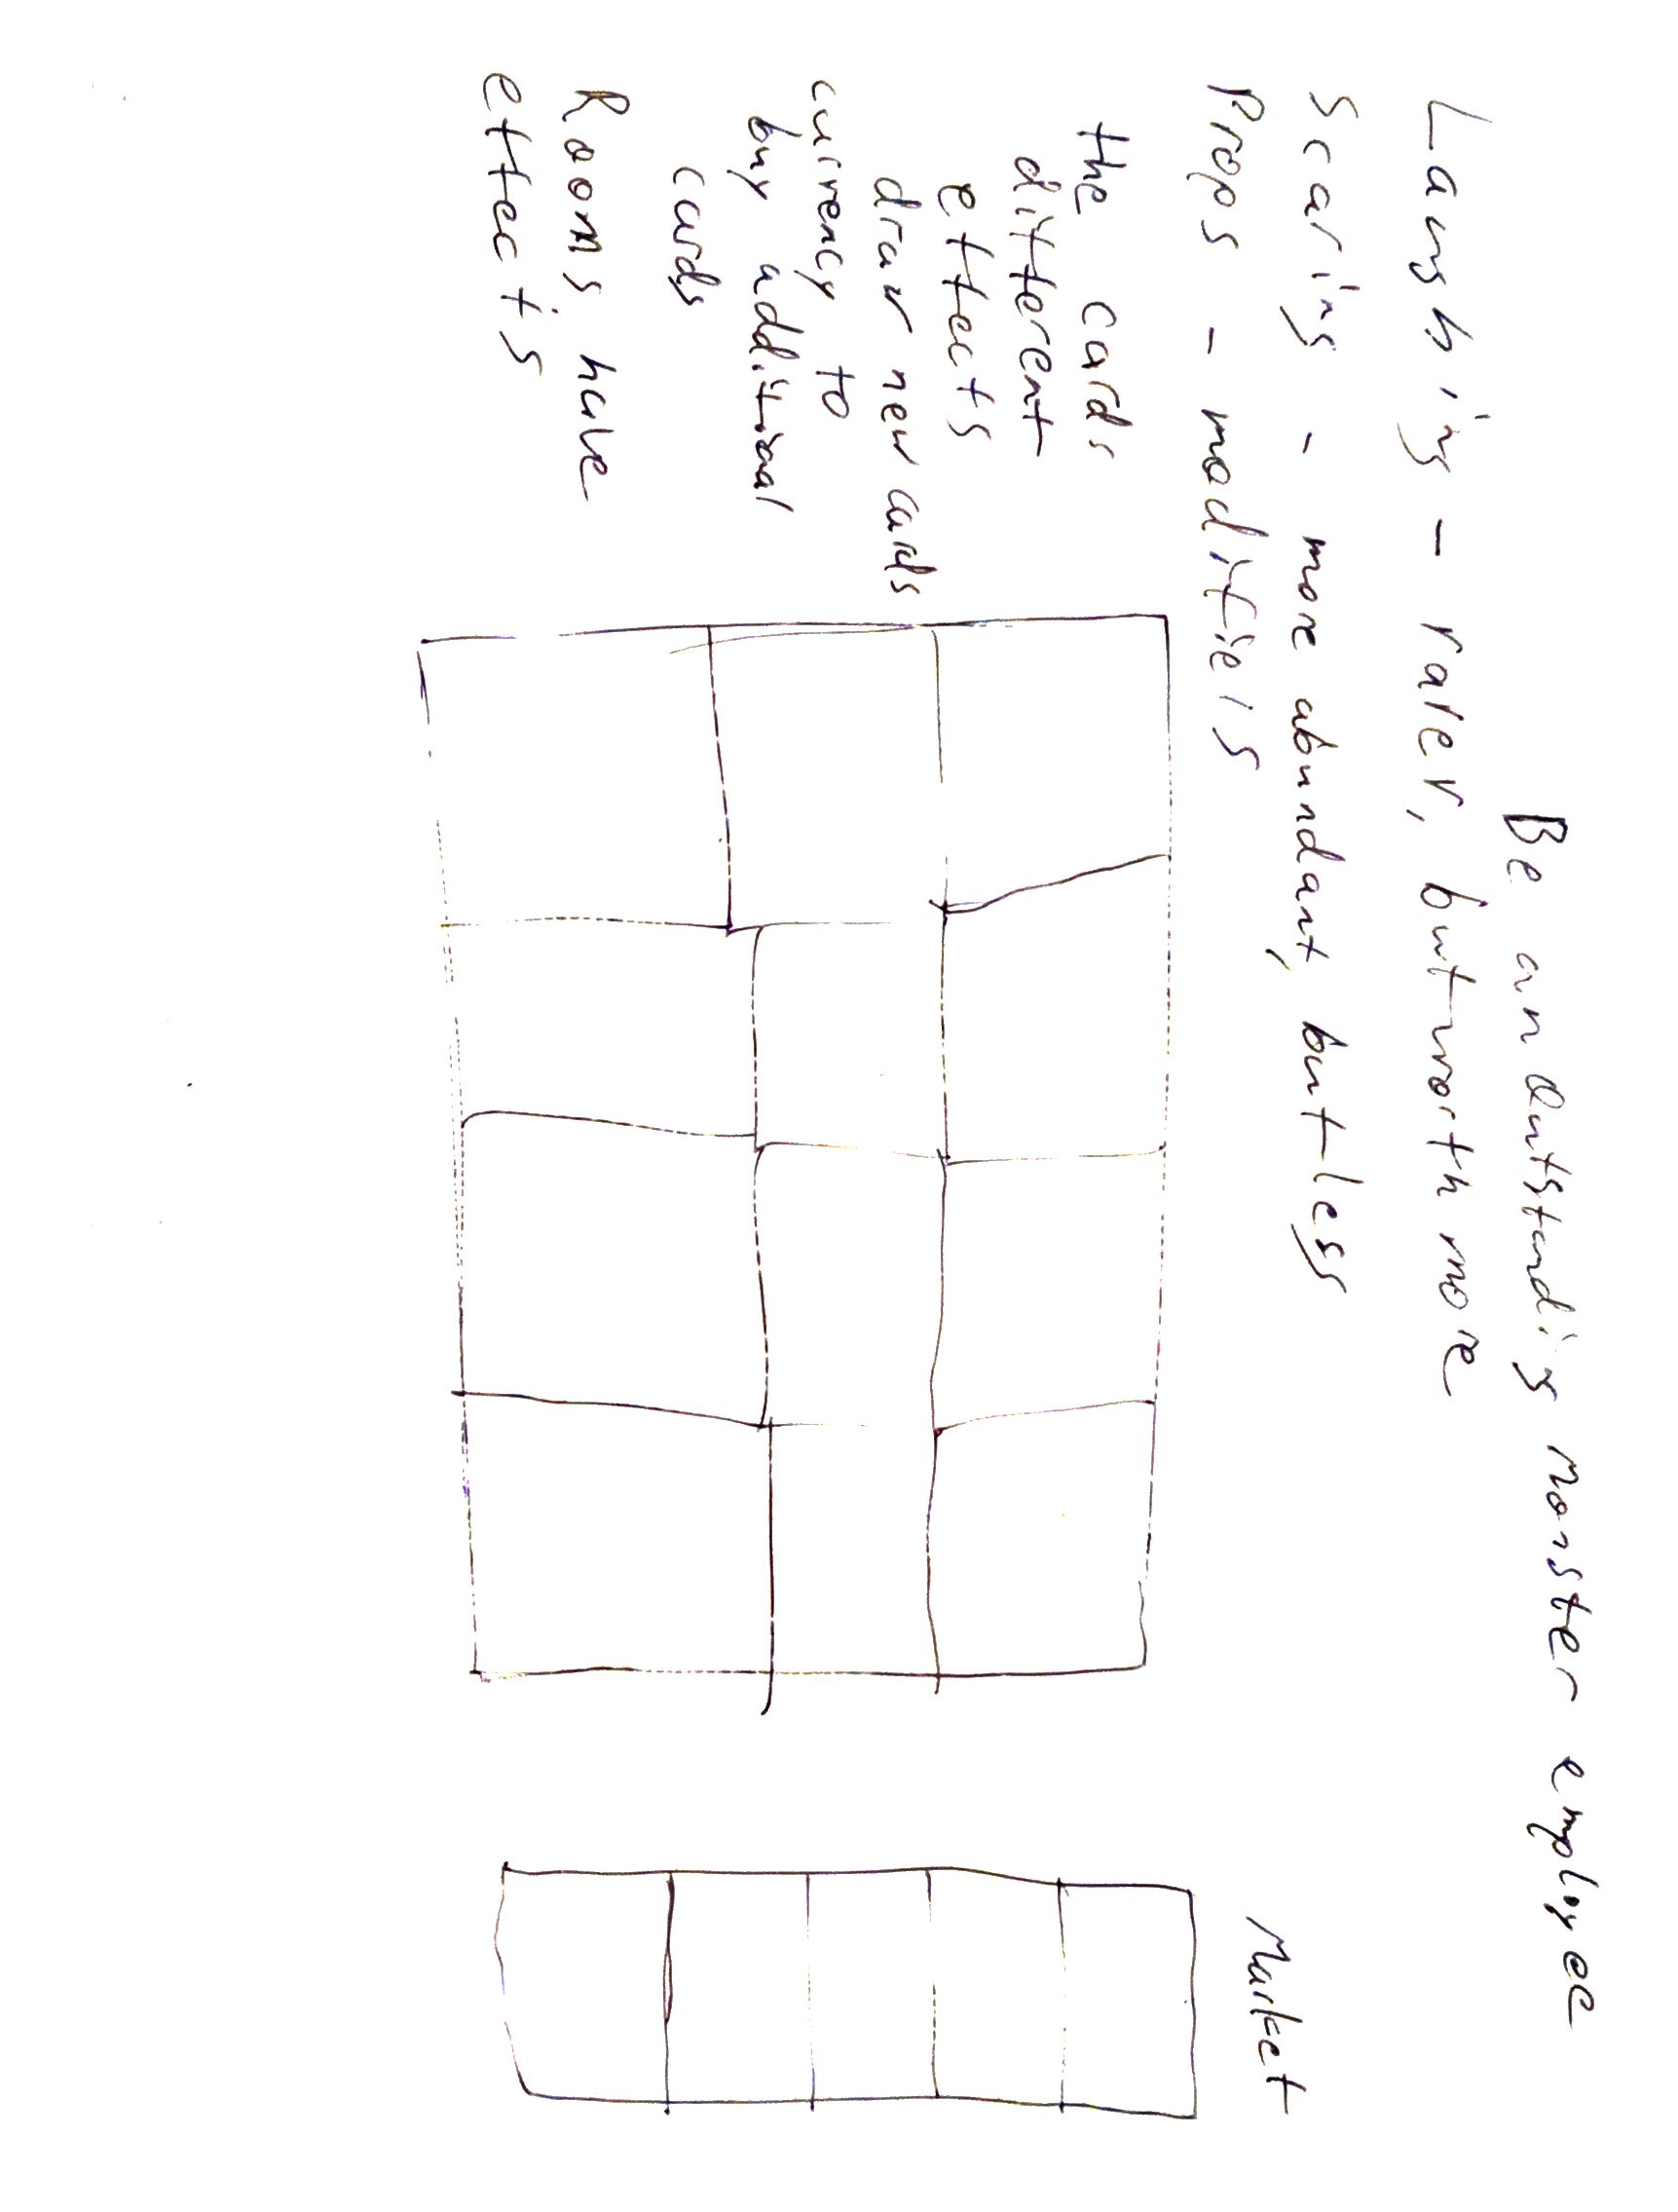 Be an Outstanding monster employee
Laughing - rarer, but worth more
Scaring - more abundant, but less
Props - modifiers
the cards
different
effects
draw new cards
currency to
buy additional
cards
Rooms have
effects
Market